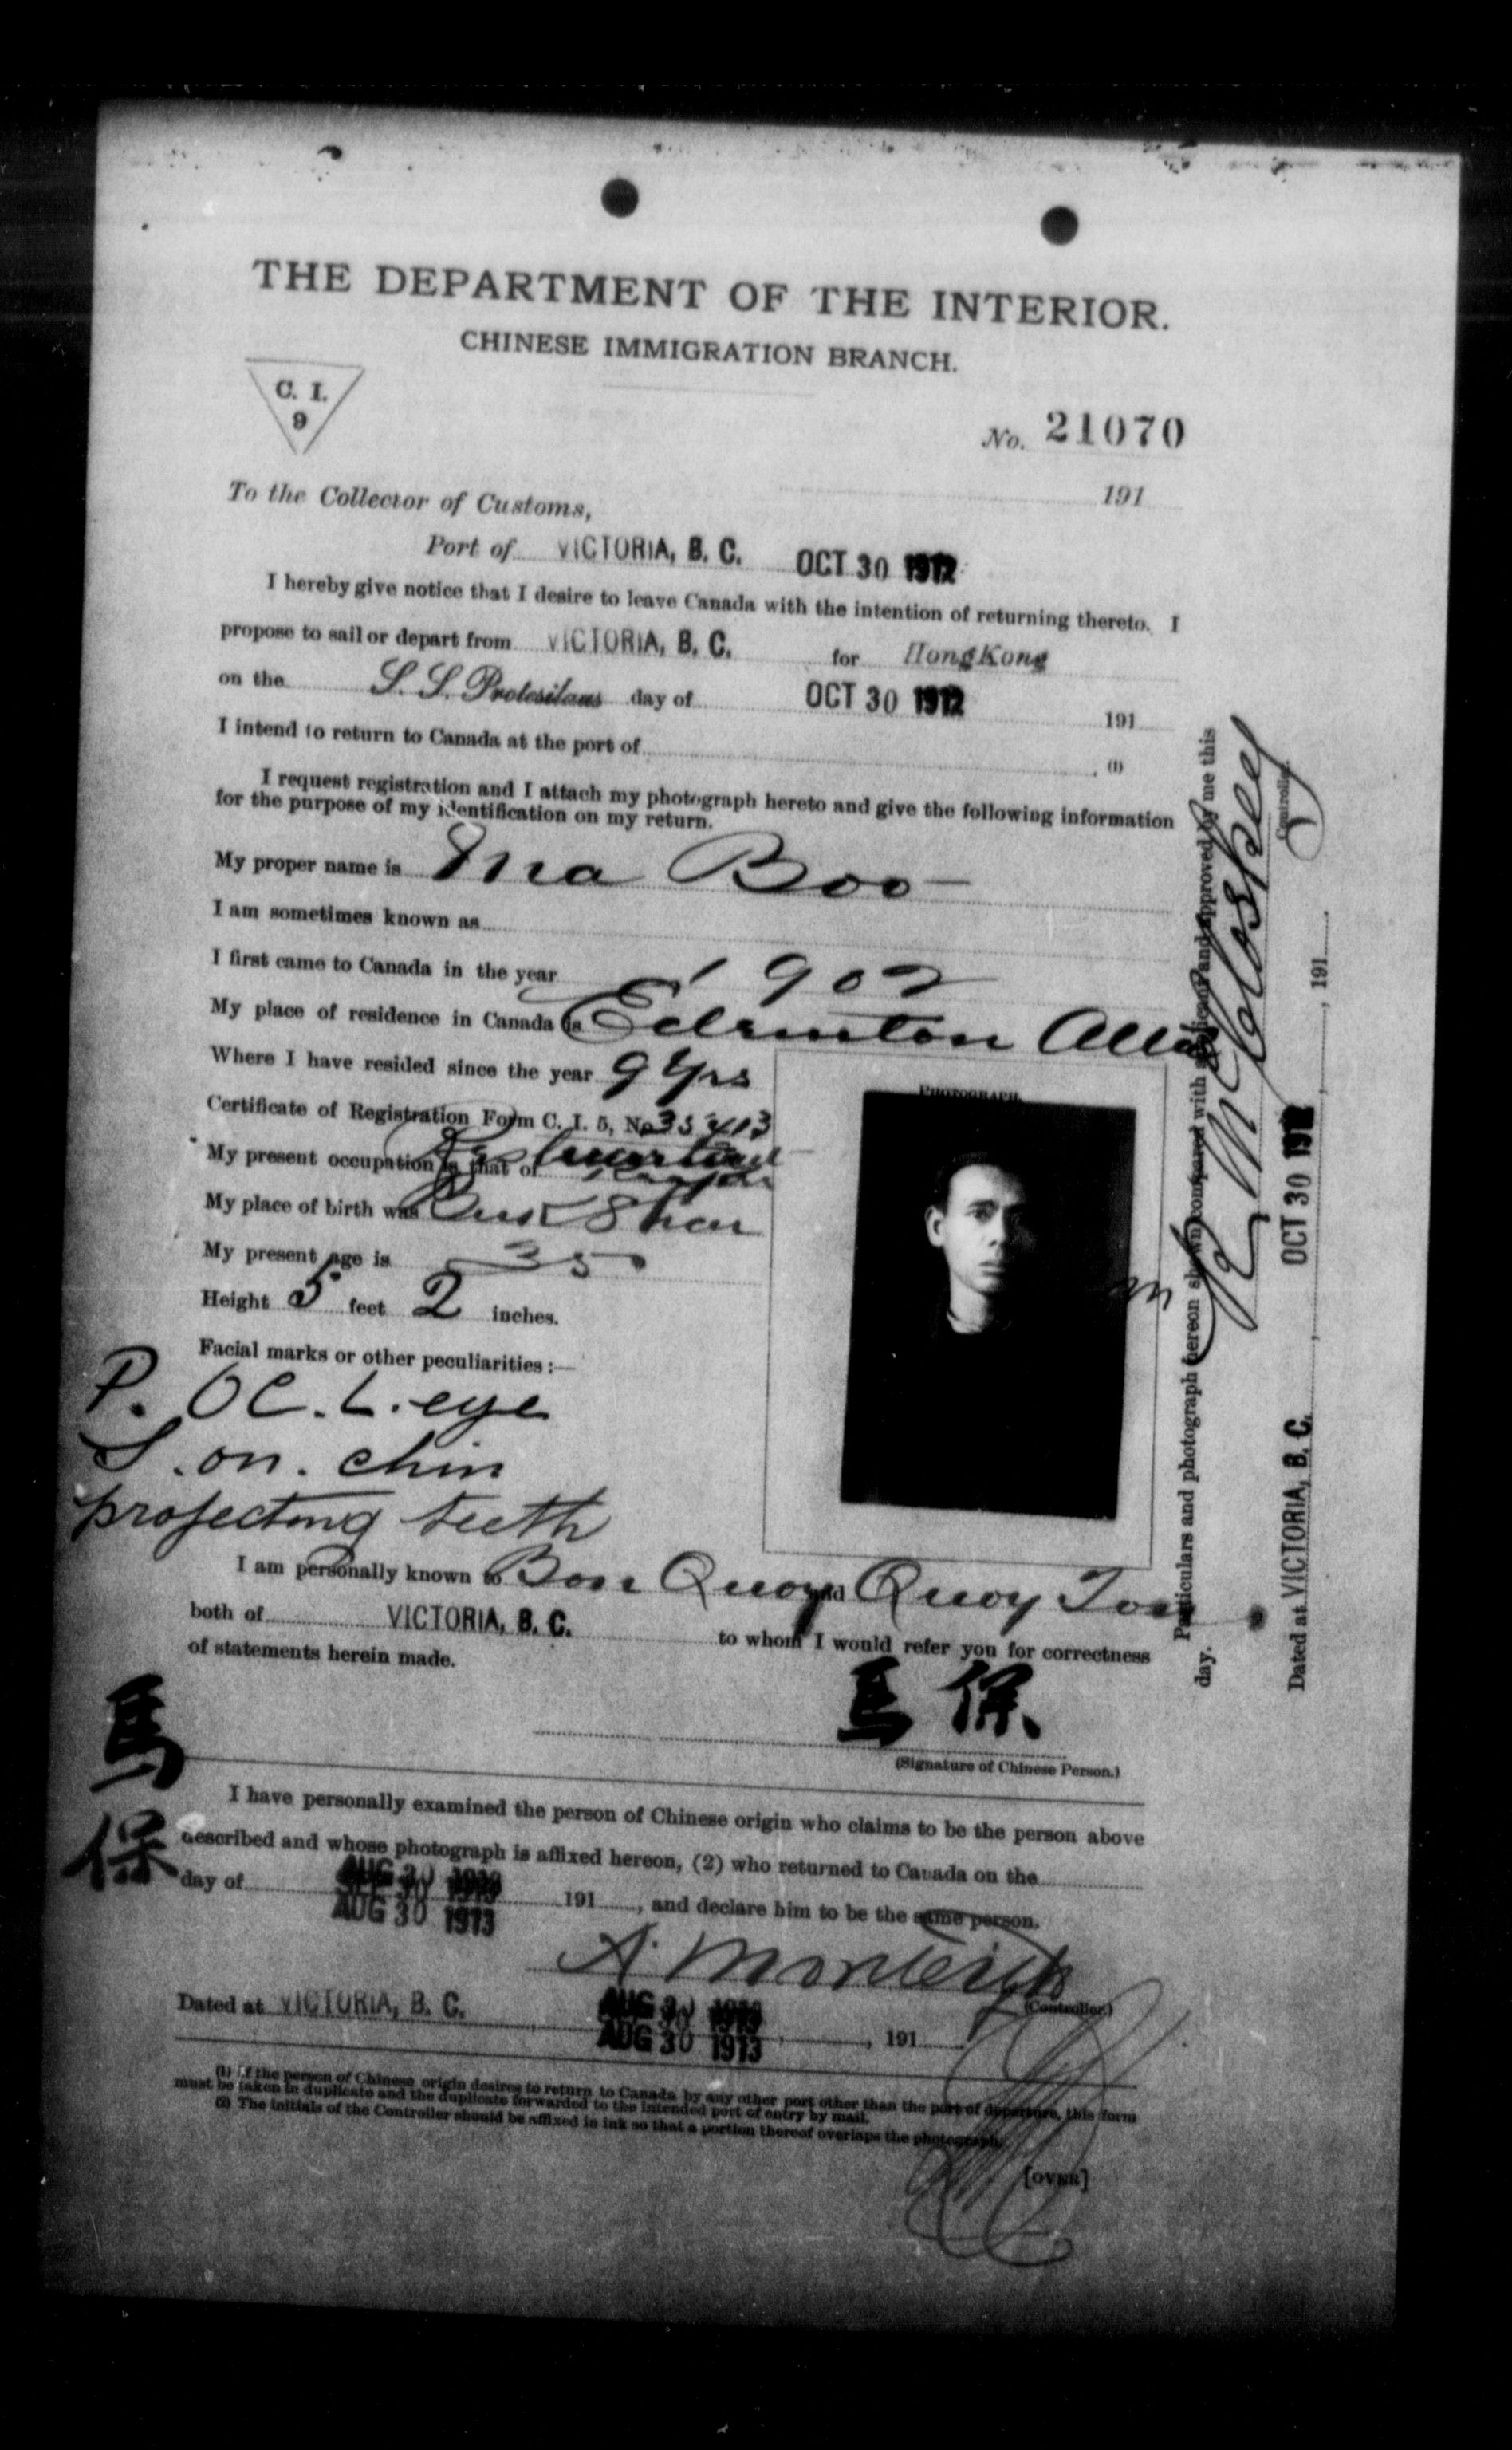 THE DEPARTMENT OF THE INTERIOR.
CHINESE IMMIGRATION BRANCH.
C. I.
9
No. 21070
191
To the Collector of Customs,
Port of VICTORIA, B. C. OCT 30 1912
I hereby give notice that I desire to leave Canada with the intention of returning thereto. I
propose to sail or depart from VICTORIA, B. C. for HongKong
on the S. S. Protesilaus day of OCT 30 1912 191
I intend to return to Canada at the port of . (1)
I request registration and I attach my photograph hereto and give the following information
for the purpose of my identification on my return.
My proper name is Ma Boo
I am sometimes known as
I first came to Canada in the year 1902
My place of residence in Canada is Edmnton Alta
Where I have resided since the year 9 yrs
Certificate of Registration Form C. I. 5, No 35413
My present occupation is that of
My place of birth was Shan
My present age is 35
Height 5 feet 2 inches.
Facial marks or other peculiarities :—
P. OC. L. eye
S. on. chin
projecting teeth
PHOTOGRAPH
I am personally known to Bon Quoy and Quoy
both of VICTORIA, B. C. to whom I would refer you for correctness
of statements herein made.
馬保
(Signature of Chinese Person.)
馬保
I have personally examined the person of Chinese origin who claims to be the person above
described and whose photograph is affixed hereon, (2) who returned to Canada on the
day of AUG 30 1913 191 , and declare him to be the same person.
AUG 30 1913
A. Monteith
(Controller.)
Dated at VICTORIA, B. C. AUG 30 1913 , 191
AUG 30 1913
(1) If the person of Chinese origin desires to return to Canada by any other port other than the port of departure, this form
must be taken in duplicate and the duplicate forwarded to the intended port of entry by mail.
(2) The initials of the Controller should be affixed in ink so that a portion thereof overlaps the photograph.
[OVER]
Particulars and photograph hereon shown compared with applicant and approved by me this
day.
Controller.
Dated at VICTORIA, B. C. , OCT 30 1912 , 191